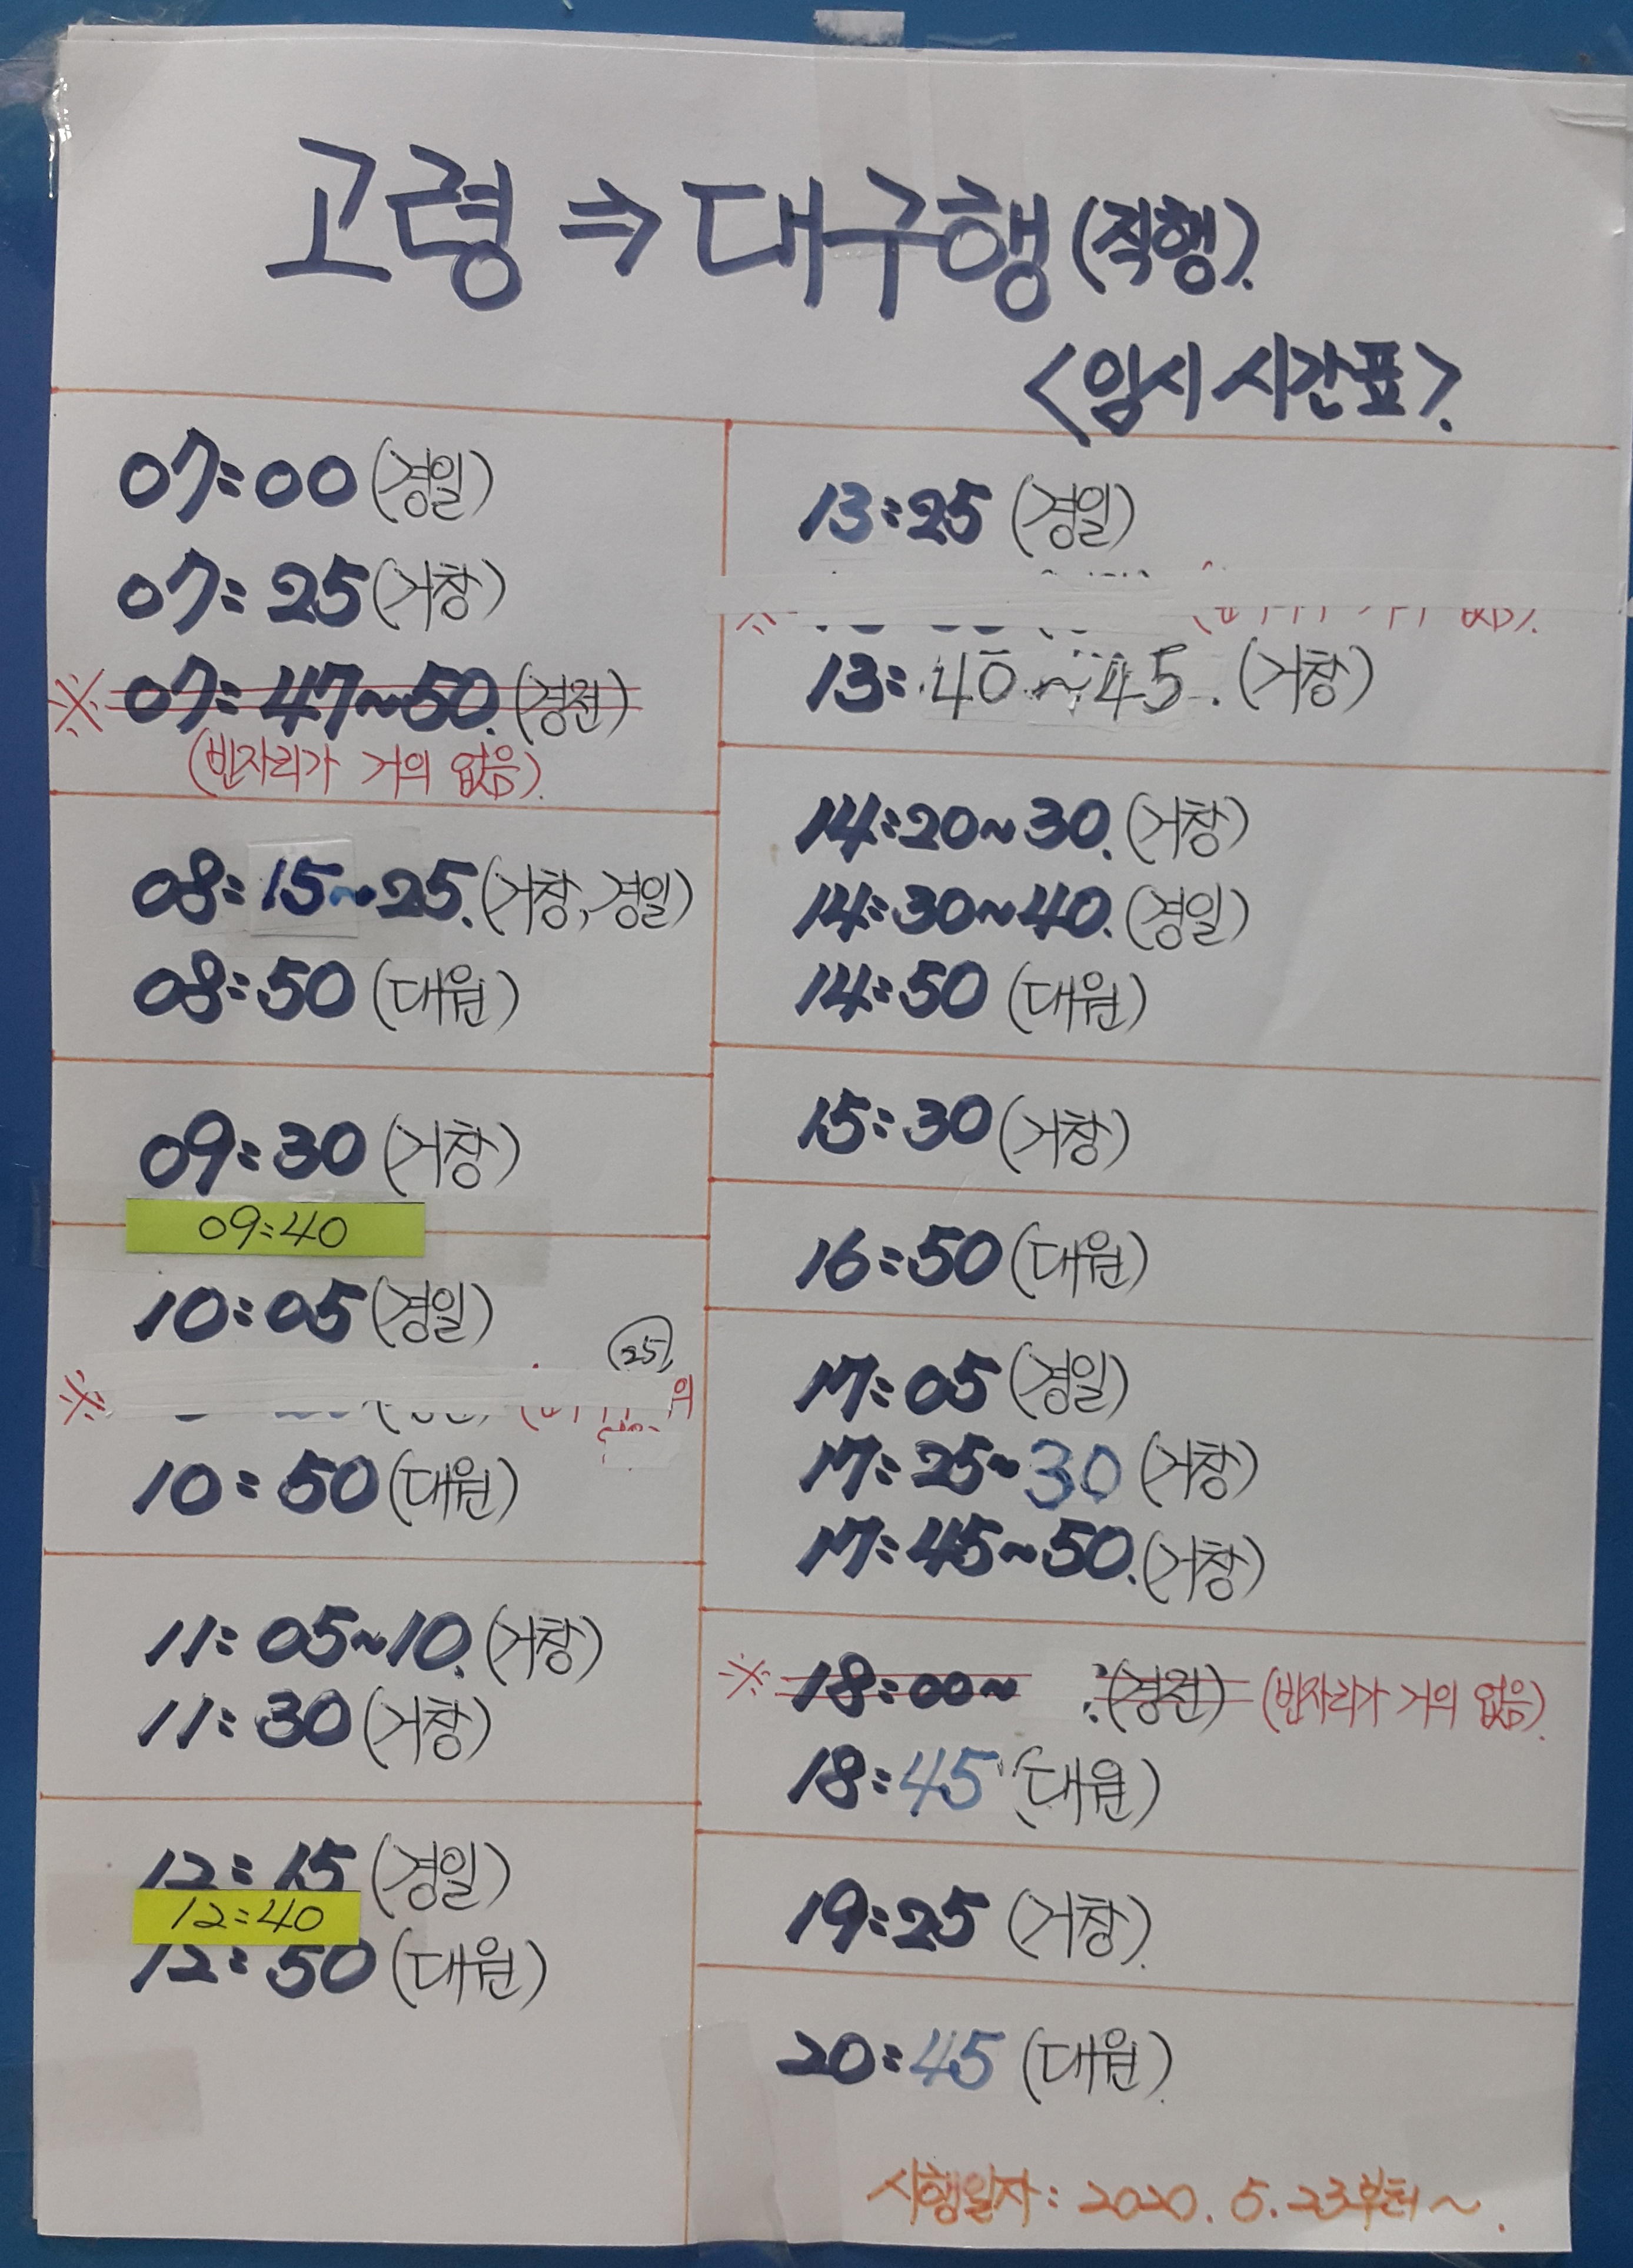 고령 ⇒ 대구행 (직행).
<임시 시간표>.
07:00 (경일)
07:25 (거창)
※ 07:47~50. (경전)
(빈자리가 거의 없음).
08:15~25. (거창, 경일)
08:50 (대원)
09:30 (거창)
09:40
10:05 (경일)
(25)
※
10:50 (대원)
11:05~10. (거창)
11:30 (거창)
12:15 (경일)
12:40
12:50 (대원)
13:25 (경일)
※
13:40~45. (거창)
14:20~30. (거창)
14:30~40. (경일)
14:50 (대원)
15:30 (거창)
16:50 (대원)
17:05 (경일)
17:25~30 (거창)
17:45~50. (거창)
※ 18:00~ (경전) (빈자리가 거의 없음).
18:45 (대원)
19:25 (거창).
20:45 (대원).
시행일자: 2020. 5. 23부터~.